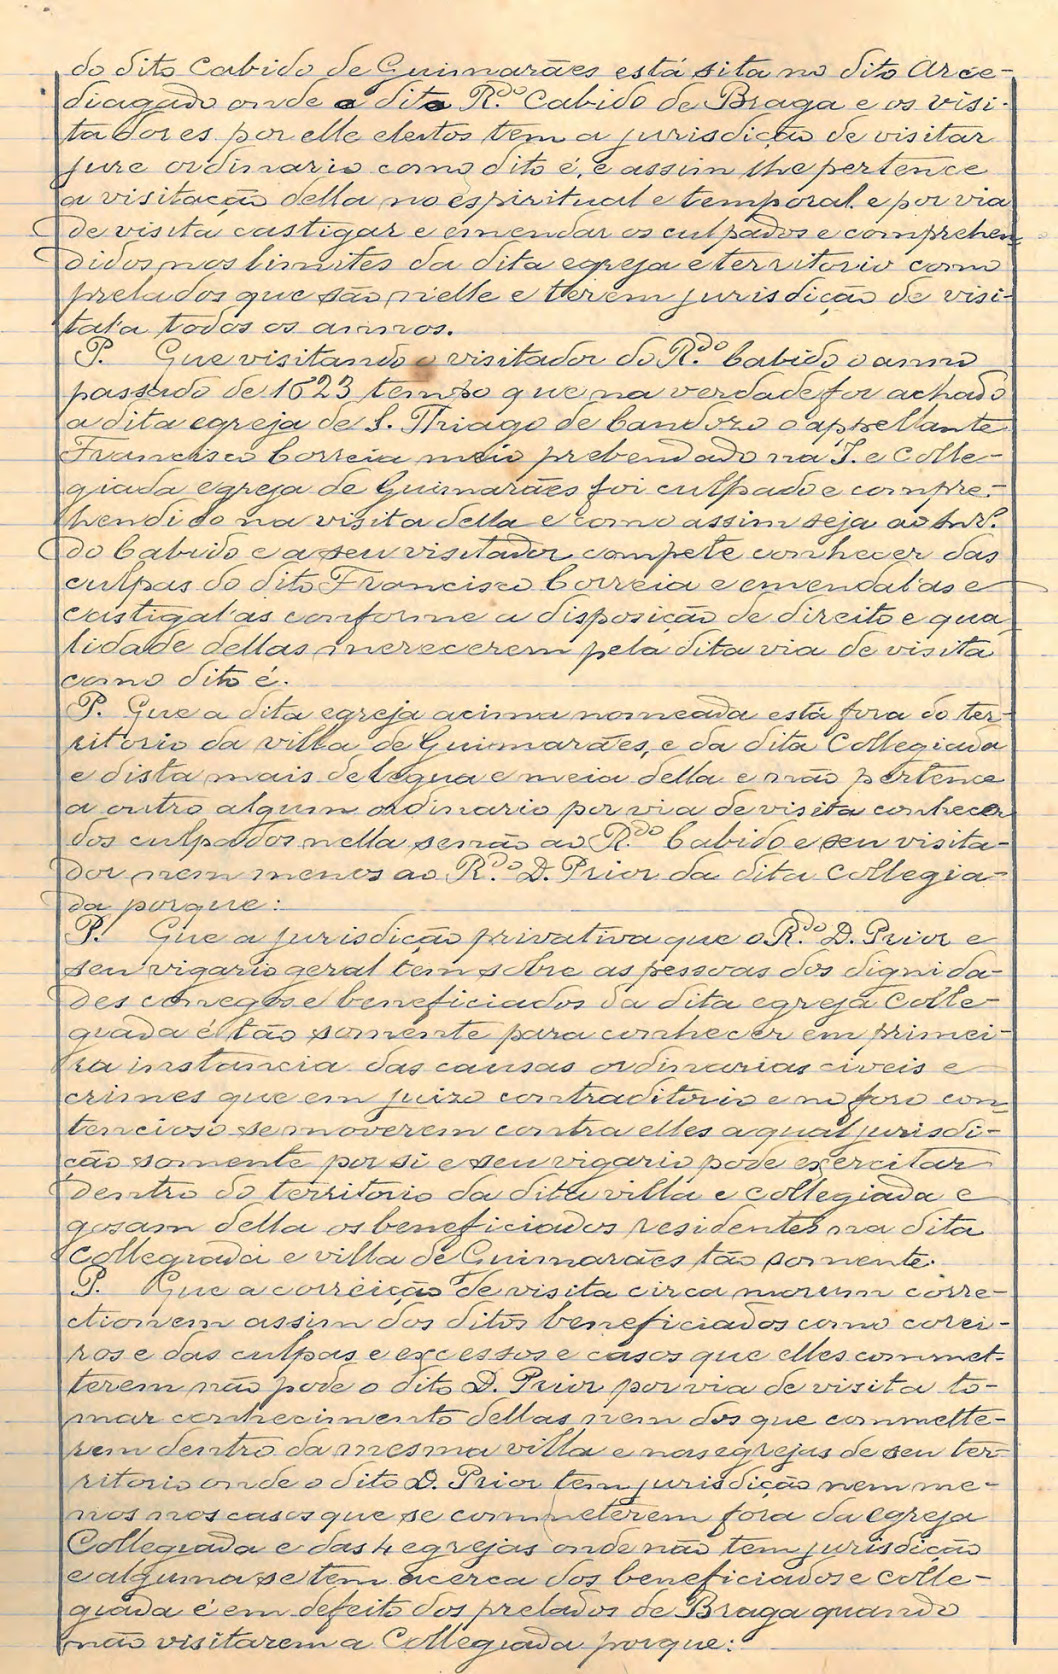 do dito Cabido de Guimarães está sita no dito Arce-
diagado onde o dito R.do Cabido de Braga e os visi-
tadores por elle eleitos tem a jurisdição de visitar
jure ordinario como dito é, e assim lhe pertence
a visitação della no espiritual e temporal e por via
de visita castigar e emendar os culpados e comprehen
didos nos limites da dita egreja e territorio como
prelados que são n'elle e terem jurisdição de visi-
tal'a todos os annos.
P. Que visitando o visitador do R.do Cabido o anno
passado de 1623 tempo que na verdade foi achado
a dita egreja de S. Thiago de Candozo o appellante
Francisco Correia meio prebendado na I. e Colle-
giada egreja de Guimarães foi culpado e compre-
hendido na visita della e como assim seja ao Snr.
do Cabido e a seu visitador compete conhecer das
culpas do dito Francisco Correia e emendal'as e
castigal'as conforme a disposição de direito e qua
lidade dellas merecerem pela dita via de visita
como dito é.
P. Que a dita egreja acima nomeada está fora do ter-
ritorio da villa de Guimarães, e da dita Collegiada
e dista mais de legua e meia della e não pertence
a outro algum ordinario por via de visita conhecer
dos culpados nella senão ao R.do Cabido e seu visita-
dor nem menos ao R.do D. Prior da dita Collegia-
da porque:
P. Que a jurisdição privativa que o R.do D. Prior e
seu vigario geral tem sobre as pessoas dos dignida-
des conegos e beneficiados da dita egreja Colle-
giada é tão somente para conhecer em primei-
ra instancia das causas ordinarias civeis e
crimes que em juizo contraditorio e no foro con-
tencioso se moverem contra elles a qual jurisdi-
ção somente por si e seu vigario pode exercitar
dentro do territorio da dita villa e collegiada e
gosam della os beneficiados residentes na dita
Collegiada e villa de Guimarães tão somente.
P. Que a correição de visita circa morum corre-
ctionem assim dos ditos beneficiados como corei-
ros e das culpas e excessos e casos que elles commet-
terem não pode o dito D. Prior por via de visita to-
mar conhecimento dellas nem dos que commette-
rem dentro da mesma villa e nas egrejas de seu ter-
ritorio onde o dito D. Prior tem jurisdição nem me-
nos nos casos que se commeterem fora da egreja
Collegiada e das 4 egrejas onde não tem jurisdição
e alguma se tem acerca dos beneficiados e colle-
giada é em defeito dos prelados de Braga quando
não visitarem a Collegiada porque: